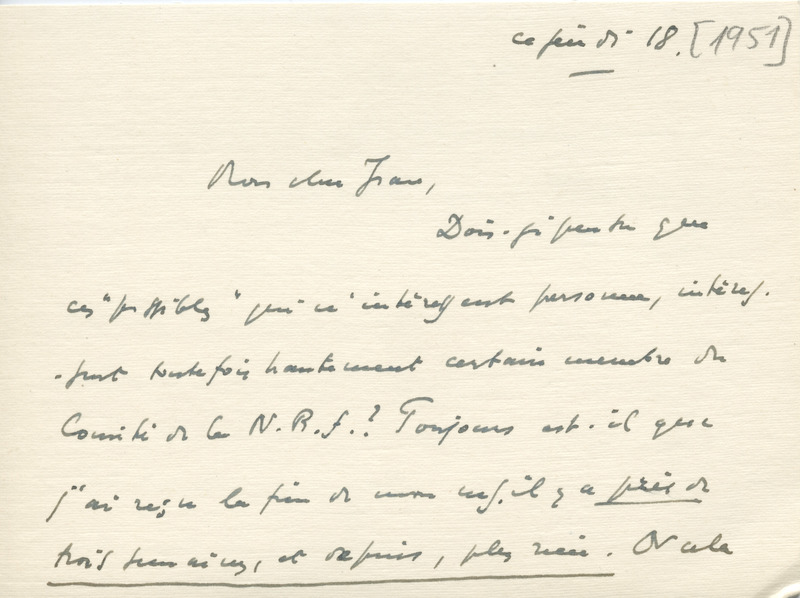 ce jeudi 18. [1951]
Mon cher Jean,
Dois-je penser que
ces "possibles" qui n'intéressent personne, intéres-
-sent toutefois hautement certain membre du
Comité de la N.R.f.? Toujours est-il que
j'ai reçu la fin de mon ms, il y a près de
trois semaines, et depuis, plus rien. Or cela